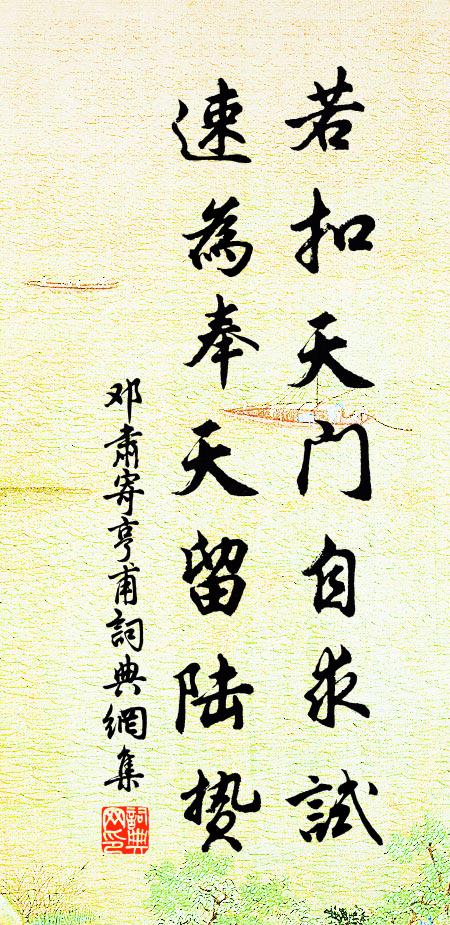 若扣天门自求試
速為奉天留陆贽
邓肃寄亨甫詞典網集
詞典网印